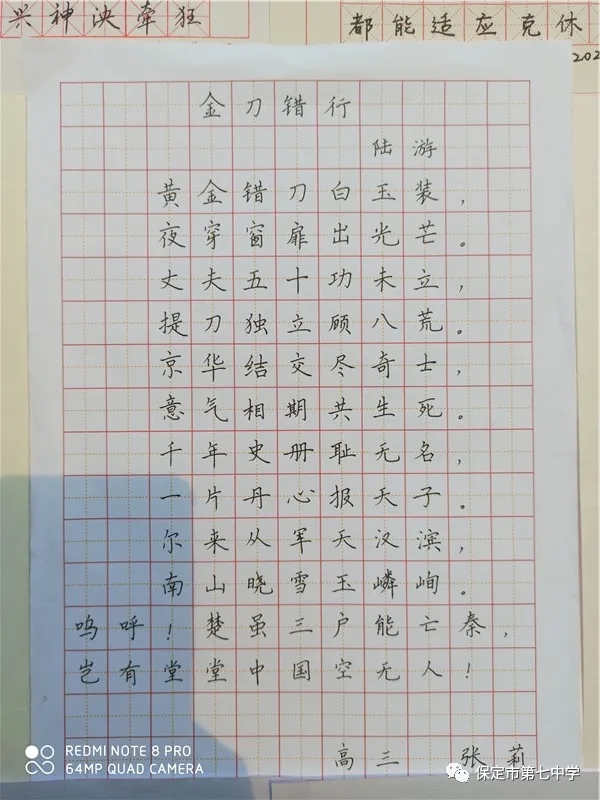 兴神泱牵狂
都能适应克休
202
金刀错行
陆游
黄金错刀白玉装，
夜穿窗扉出光芒。
丈夫五十功未立，
提刀独立顾八荒。
京华结交尽奇士，
意气相期共生死。
千年史册耻无名，
一片丹心报天子。
尔来从军天汉滨，
南山晓雪玉嶙峋。
呜呼！楚虽三户能亡秦，
岂有堂堂中国空无人！
高三 张莉
REDMI NOTE 8 PRO
64MP QUAD CAMERA
保定市第七中学